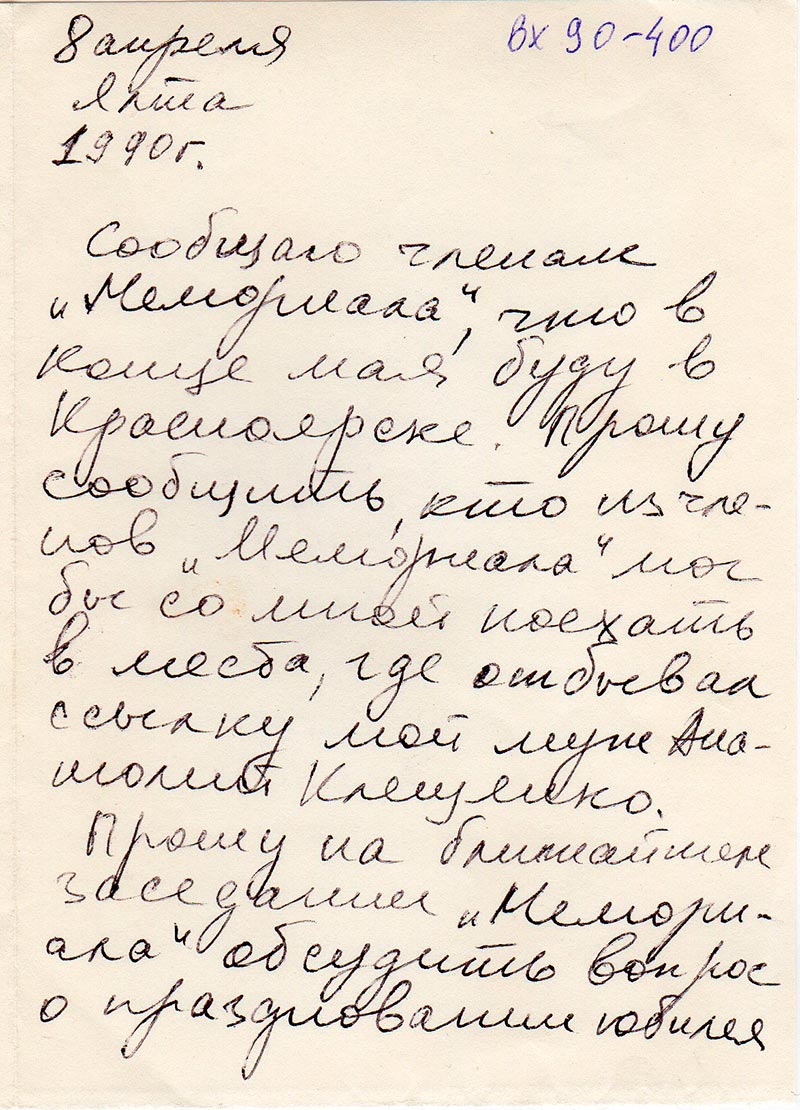 8 апреля
вх 90-400
Ялта
1990г.
Сообщаю членам
„Мемориала“, что в
конце мая буду в
Красноярске. Прошу
сообщить, кто из чле-
нов „Мемориала“ мог
бы со мной поехать
в места, где отбывал
ссылку мой муж Ана-
толий Клещенко.
Прошу на ближайшем
заседании „Мемори-
ала“ обсудить вопрос
о праздновании юбилея